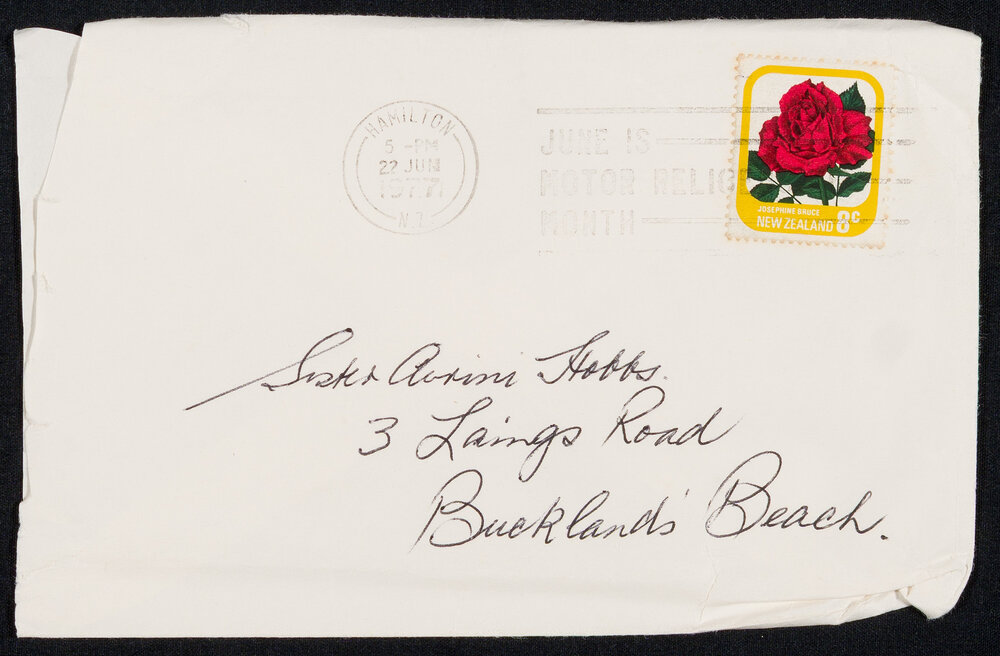 HAMILTON
5 - PM
22 JUN
1977
N.Z.
JUNE IS
MOTOR RELIC
MONTH
JOSEPHINE BRUCE
NEW ZEALAND 8c
Sister Hobbs.
3 Laings Road
Bucklands Beach.